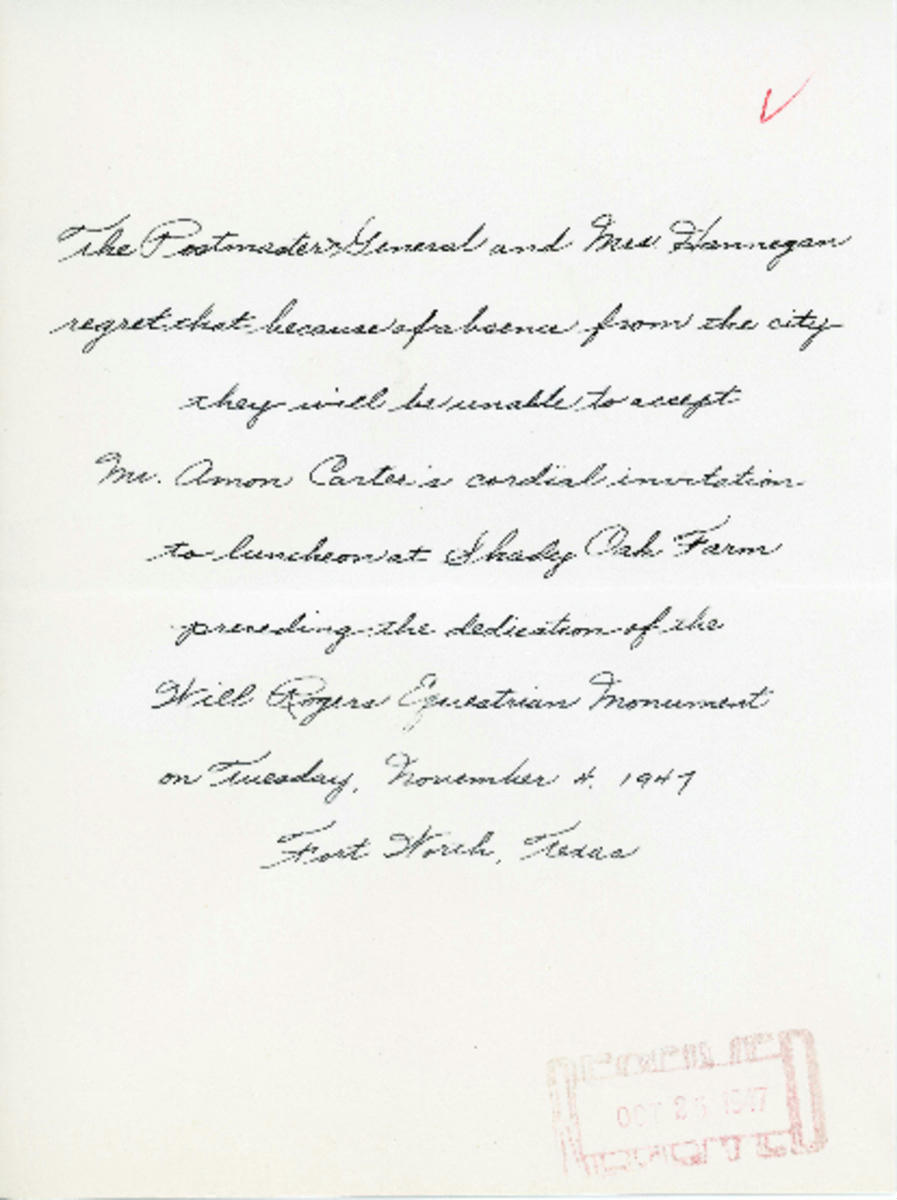 The Postmaster General and Mrs. Hannegan
regret that because of absence from the city
they will be unable to accept
Mr. Amon Carter's cordial invitation
to luncheon at Shady Oak Farm
preceding the dedication of the
Will Rogers Equestrian Monument
on Tuesday, November 4, 1947
Fort Worth, Texas
OCT 25 1947